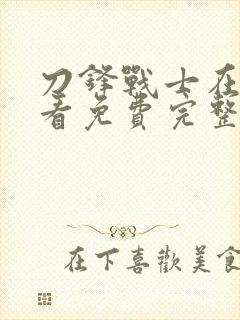 刀鋒戰士在
看免費完整
在下喜歡美食